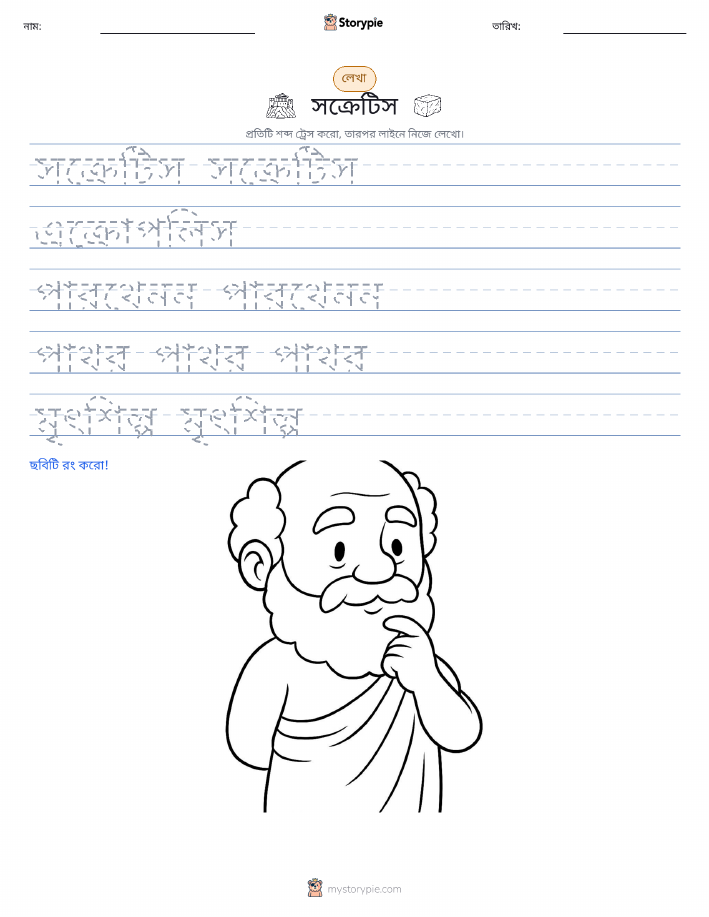 নাম:
Storypie
তারিখ:
লেখা
সক্রেটিস
প্রতিটি শব্দ ট্রেস করো, তারপর লাইনে নিজে লেখো।
সক্রেটিস সক্রেটিস
এক্রোপলিস
পারথেনন পারথেনন
পাথর পাথর পাথর
মৃৎশিল্প মৃৎশিল্প
ছবিটি রং করো!
mystorypie.com